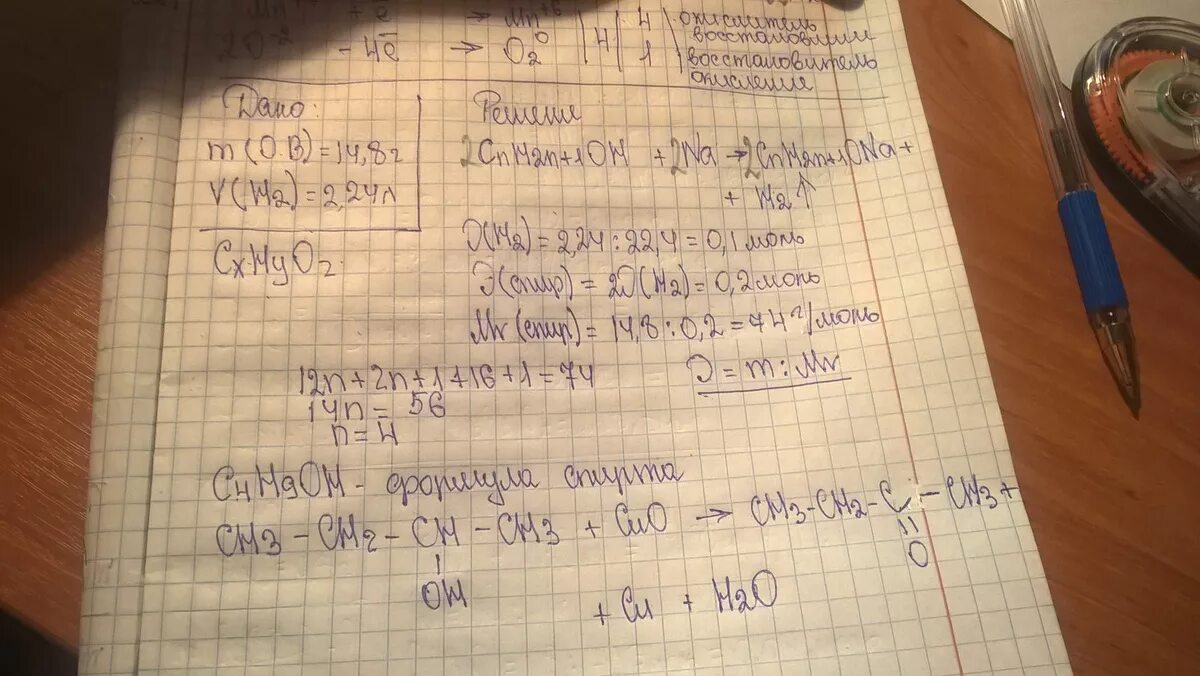 + e̅ → Mn⁺⁶ | | 4 | окислитель
восстановлении
2O⁻² - 4e̅ → O₂⁰ | 4 | 1 | восстановитель
окисление
Дано:
m(О.В) = 14,8 г
V(H2) = 2,24 л
CxHyOz.
Решение
2CnH2n+1OH + 2Na → 2CnH2n+1ONa +
+ H2↑
ν(H2) = 2,24 : 22,4 = 0,1 моль
ν(спир) = 2ν(H2) = 0,2 моль
Mr(спир) = 14,8 : 0,2 = 74 г/моль
12n + 2n + 1 + 16 + 1 = 74
14n = 56
n = 4
ν = m : Mr
C4H9OH - формула спирта
CH3 - CH2 - CH - CH3 + CuO → CH3 - CH2 - C - CH3 +
| ||
OH O
+ Cu + H2O